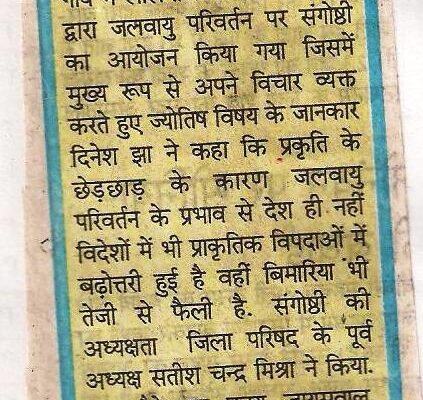 द्वारा जलवायु परिवर्तन पर संगोष्ठी
का आयोजन किया गया जिसमें
मुख्य रूप से अपने विचार व्यक्त
करते हुए ज्योतिष विषय के जानकार
दिनेश झा ने कहा कि प्रकृति के
छेड़छाड़ के कारण जलवायु
परिवर्तन के प्रभाव से देश ही नहीं
विदेशों में भी प्राकृतिक विपदाओं में
बढोत्तरी हुई है वहीं बिमारिया भी
तेजी से फैली है. संगोष्ठी की
अध्यक्षता जिला परिषद के पूर्व
अध्यक्ष सतीश चन्द्र मिश्रा ने किया.